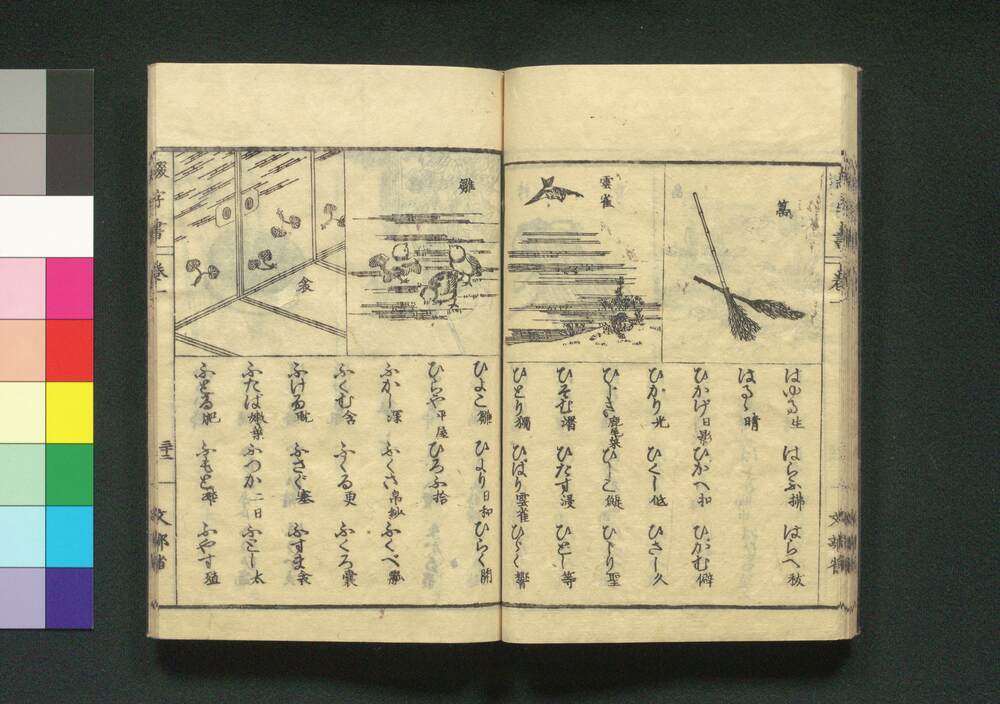 箒
雲雀
はゆる生 はらふ拂 はらへ祓
はるゝ晴
ひかげ日影 ひかへ扣 ひがむ僻
ひかり光 ひくし低 ひさし久
ひじき鹿尾菜 ひしこ鯷 ひじり聖
ひそむ潛 ひたす浸 ひとし等
ひとり獨 ひばり雲雀 ひゞく響
雛
衾
ひよこ雛 ひより日和 ひらく開
ひらや平屋 ひろふ拾
ふかし深 ふくさ帛紗 ふくべ瓢
ふくむ含 ふくる更 ふくろ囊
ふける耽 ふさぐ塞 ふすま衾
ふたば嫩葉 ふつか二日 ふとし太
ふとる肥 ふもと麓 ふやす殖
綴字書
卷一
三十二
文部省